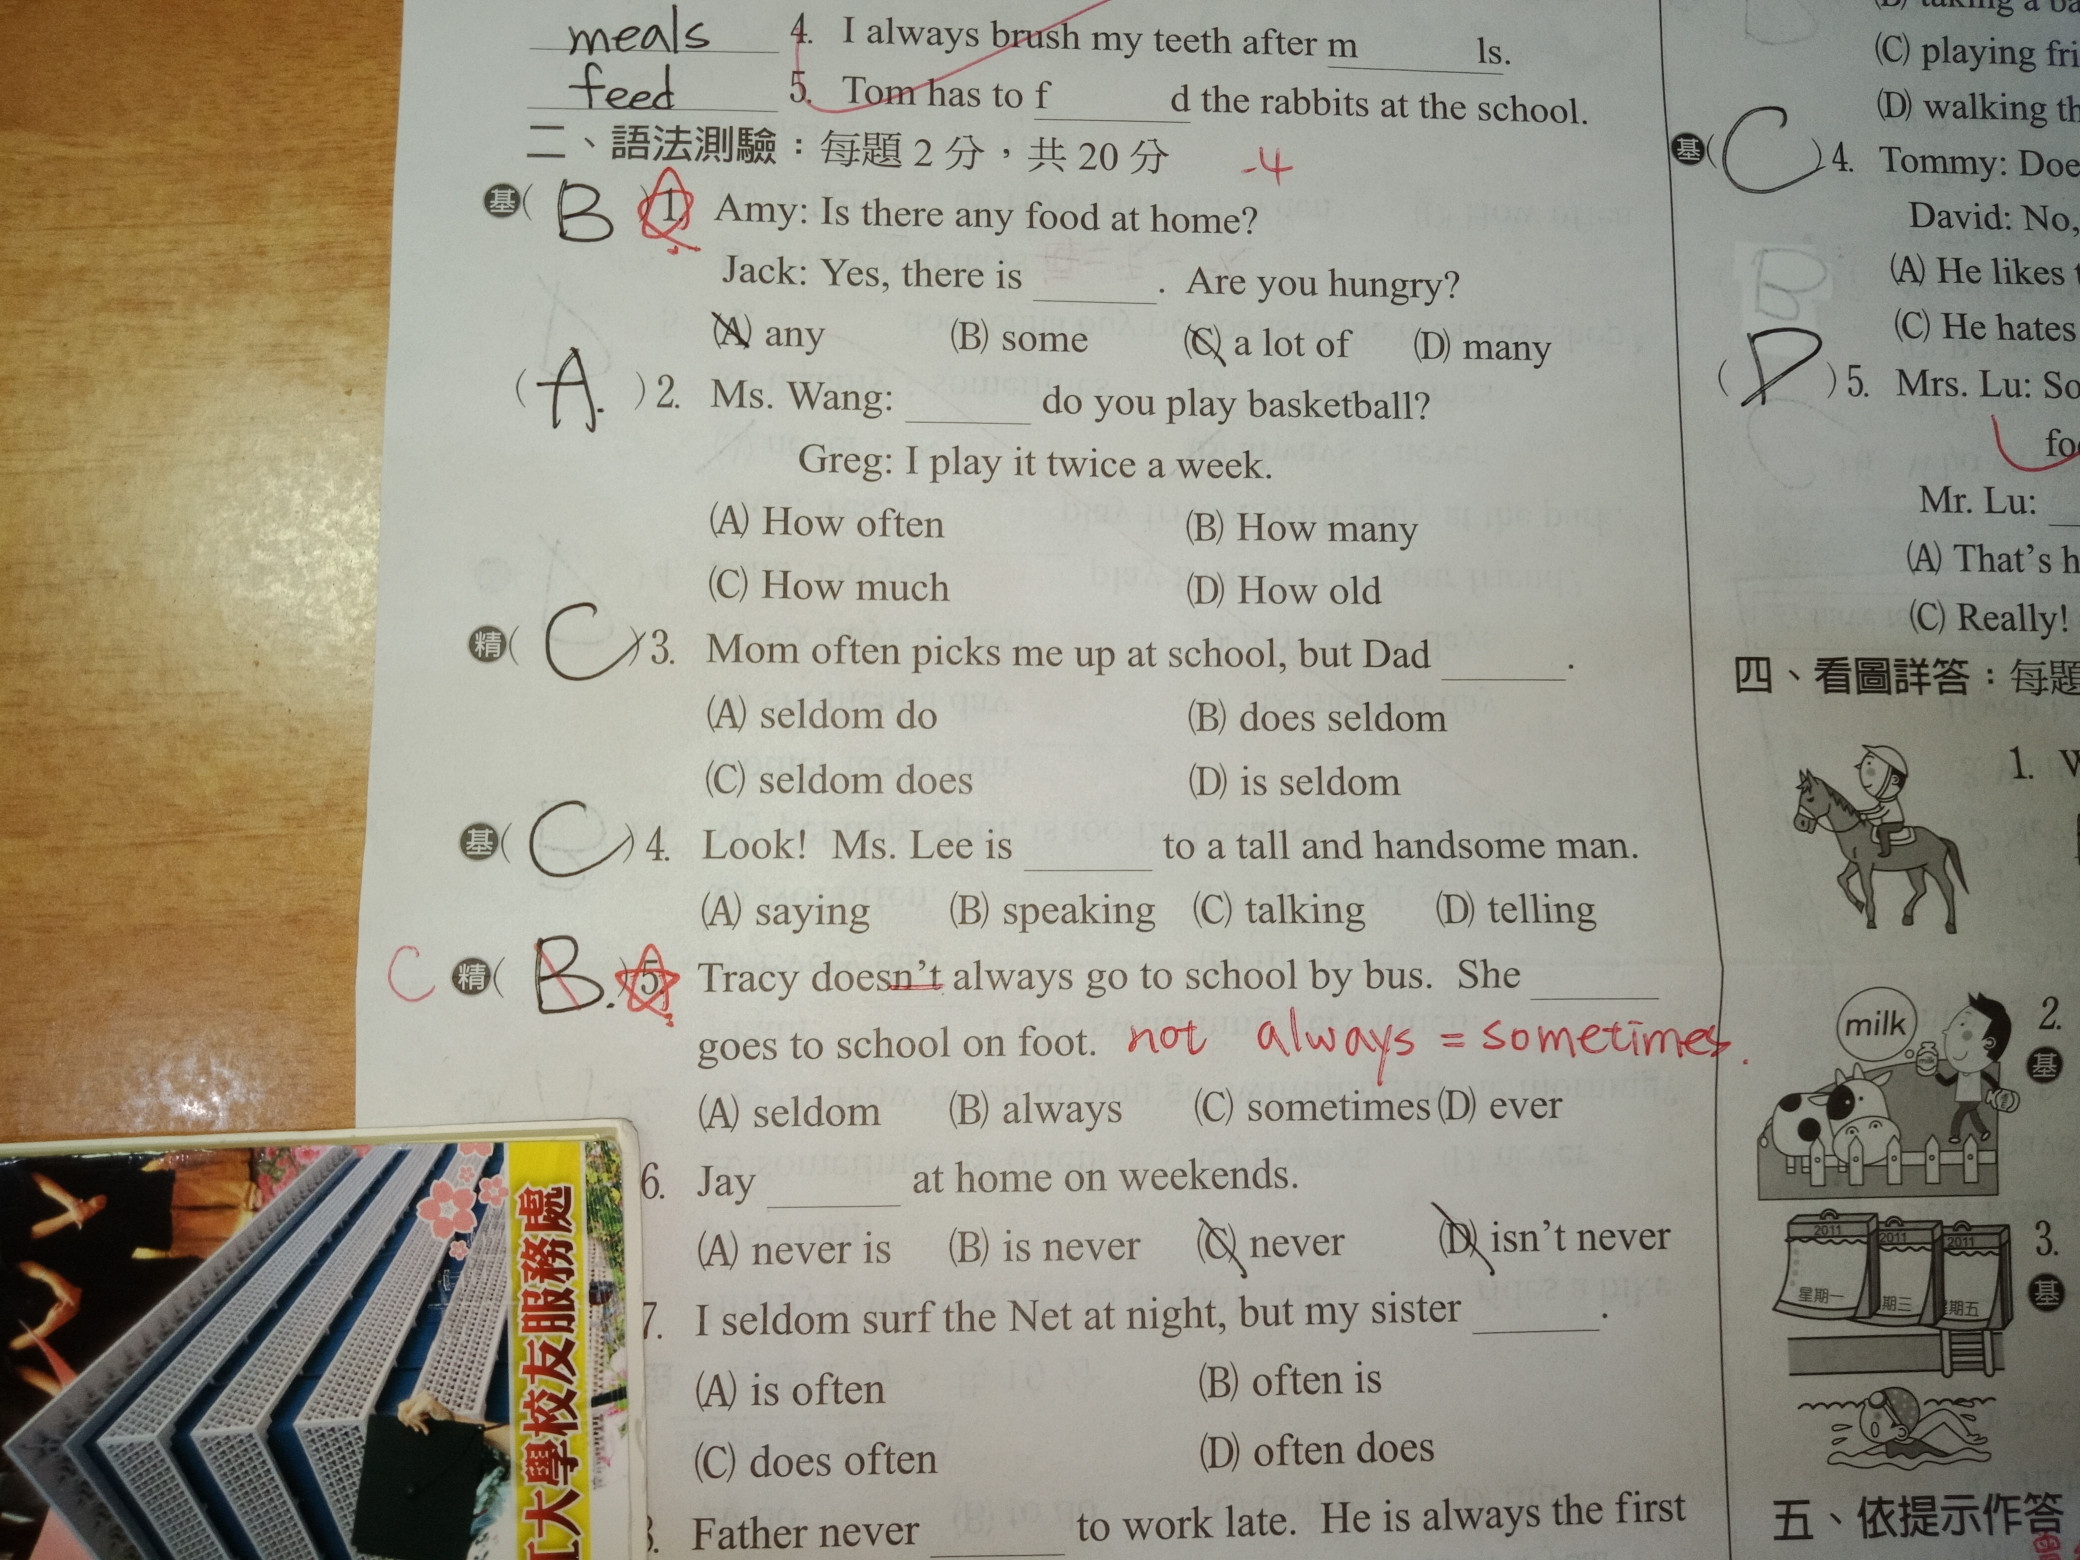 meals 4. I always brush my teeth after m ls.
feed 5. Tom has to f d the rabbits at the school.
二、語法測驗：每題 2 分，共 20 分 -4
基 ( B ) 1. Amy: Is there any food at home?
Jack: Yes, there is ______. Are you hungry?
(A) any (B) some (C) a lot of (D) many
( A. ) 2. Ms. Wang: ______ do you play basketball?
Greg: I play it twice a week.
(A) How often (B) How many
(C) How much (D) How old
精 ( C ) 3. Mom often picks me up at school, but Dad ______.
(A) seldom do (B) does seldom
(C) seldom does (D) is seldom
基 ( C ) 4. Look! Ms. Lee is ______ to a tall and handsome man.
(A) saying (B) speaking (C) talking (D) telling
C 精 ( B. ) 5. Tracy doesn't always go to school by bus. She ______
goes to school on foot. not always = sometimes.
(A) seldom (B) always (C) sometimes (D) ever
6. Jay ______ at home on weekends.
(A) never is (B) is never (C) never (D) isn't never
7. I seldom surf the Net at night, but my sister ______.
(A) is often (B) often is
(C) does often (D) often does
Father never ______ to work late. He is always the first
大學校友服務處
(C) playing fri
(D) walking th
基 ( C ) 4. Tommy: Doe
David: No,
(A) He likes
(C) He hates
( D ) 5. Mrs. Lu: So
Mr. Lu:
(A) That's h
(C) Really!
四、看圖詳答：每題
1. W
milk
2.
基
2011 2011 2011
星期一 期三 期五
3.
基
五、依提示作答